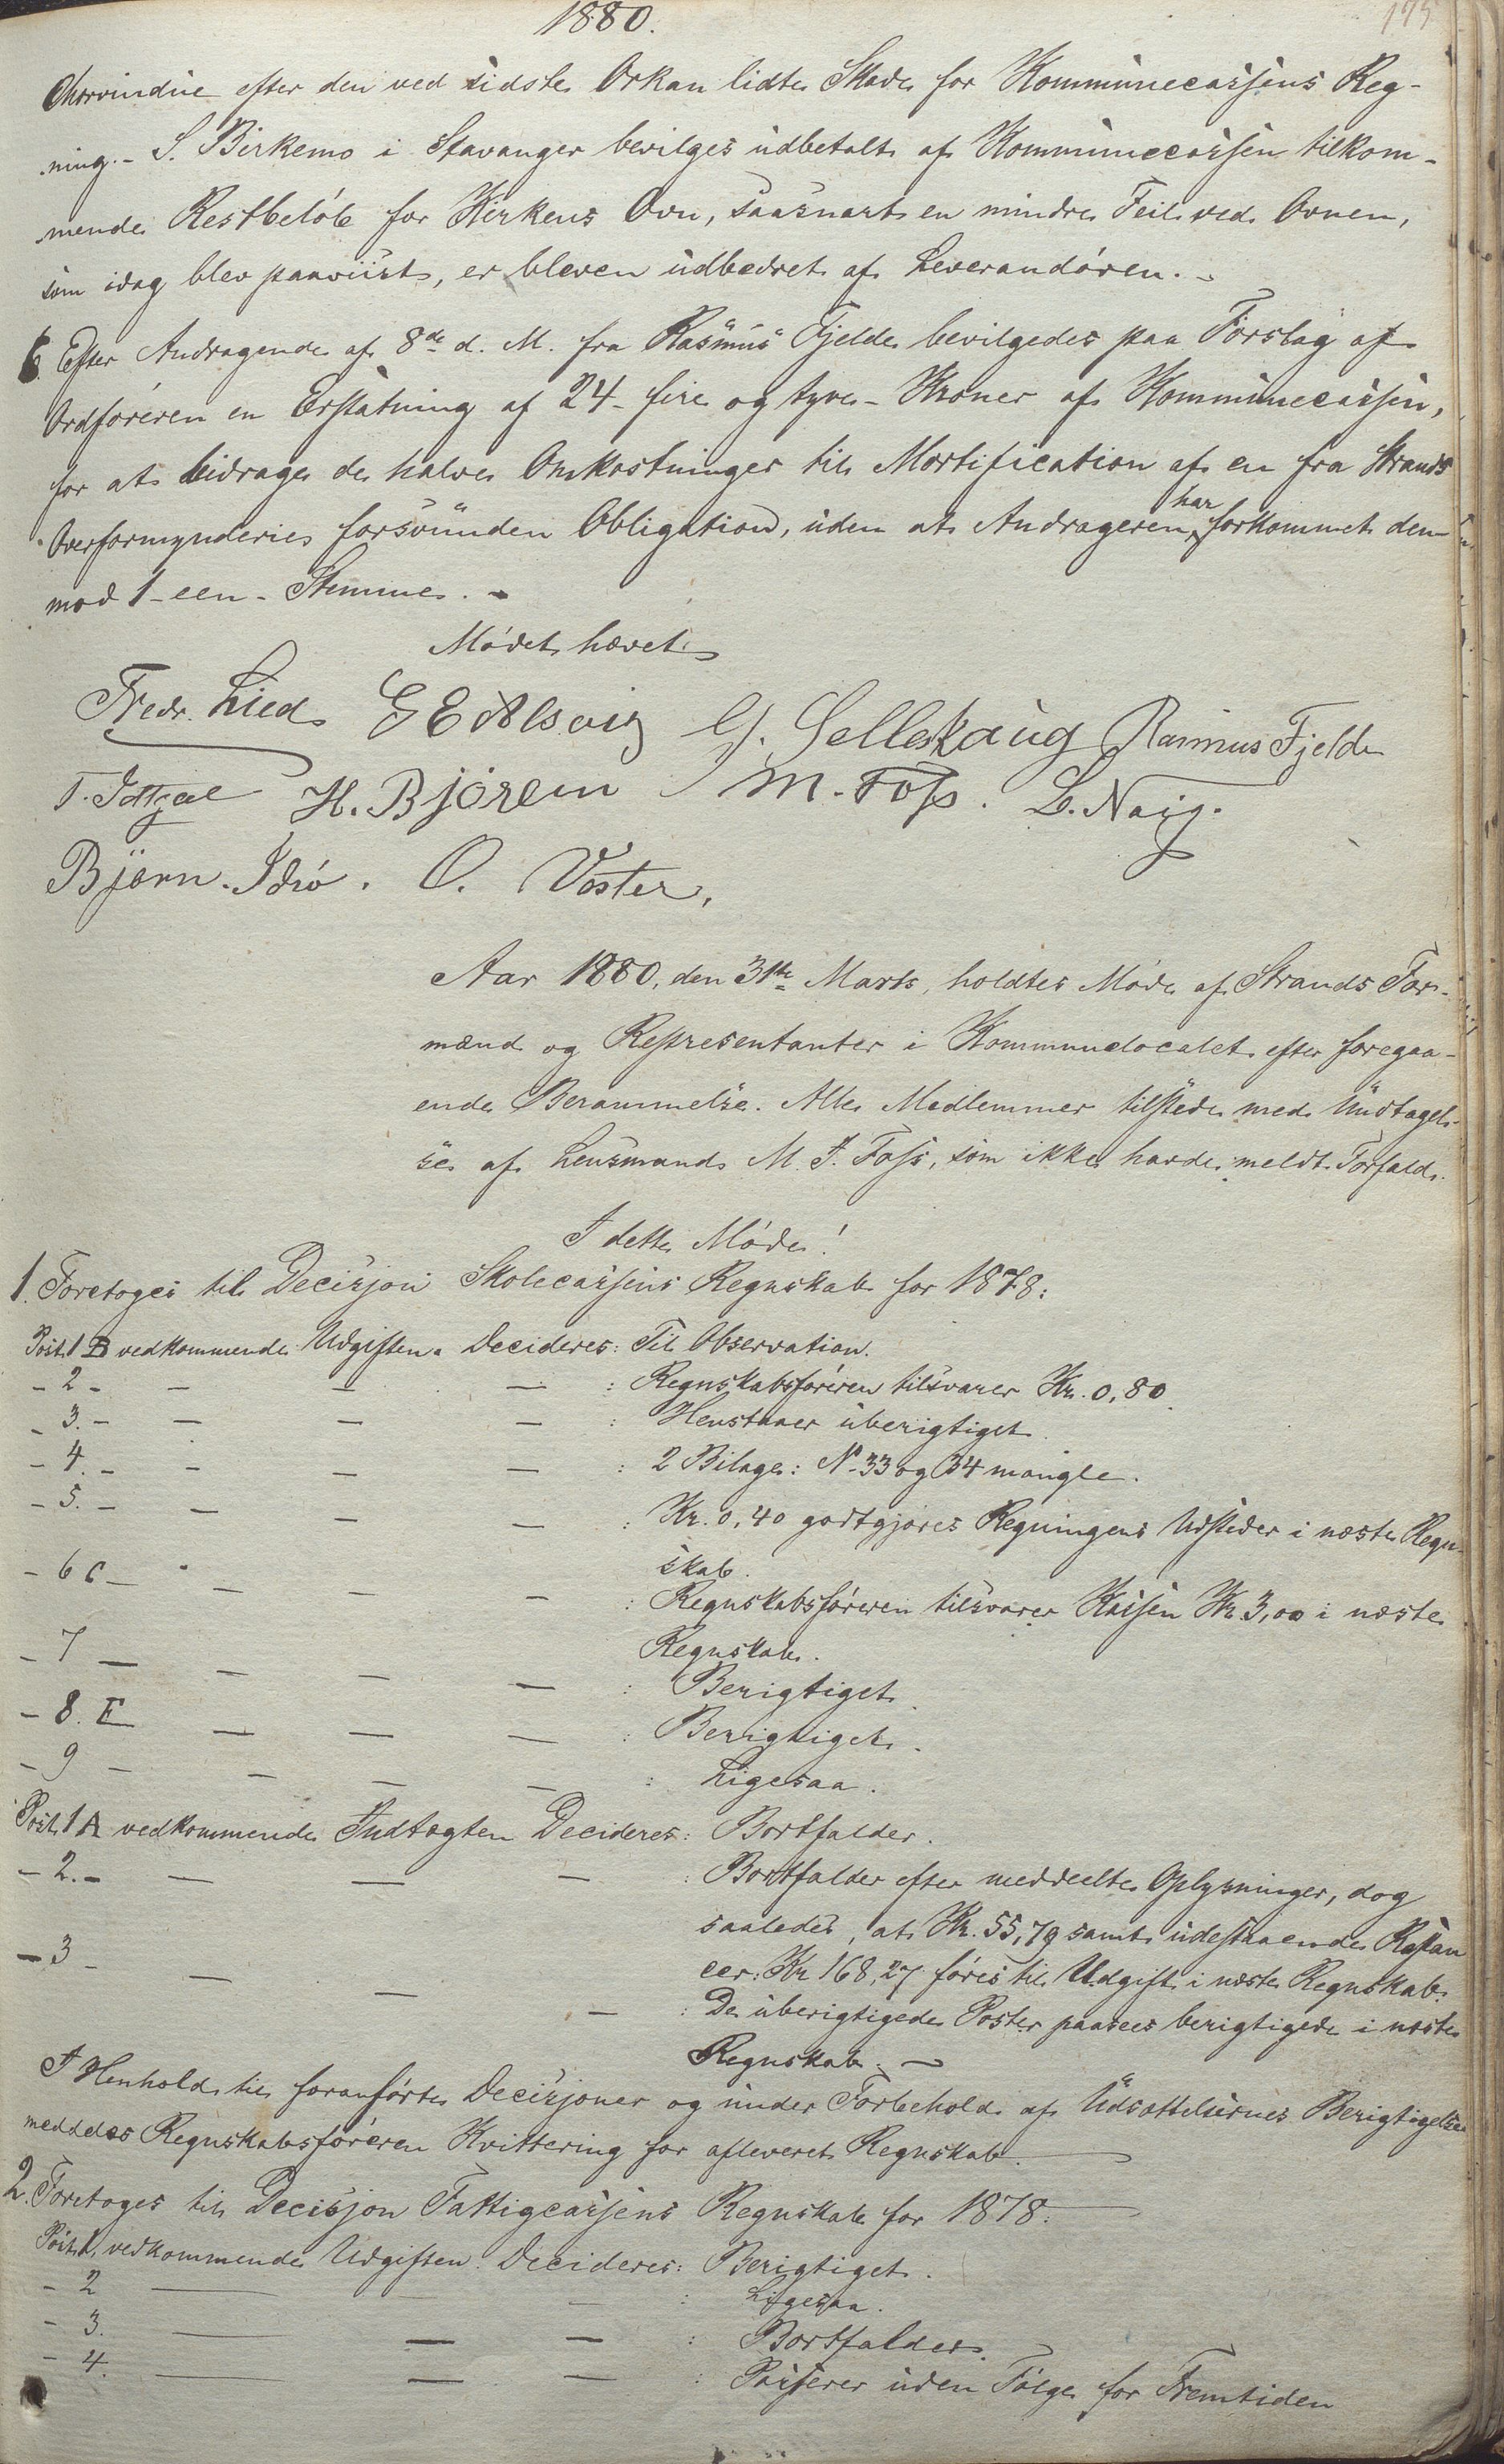 1880.
175
Chorvindue efter den ved sidste Orkan lidte Skade for Kommunecassens Reg-
ning. - S. Birkemo i Stavanger bevilges udbetalt af Kommunecassen tilkom-
mende Restbeløb for Kirkens Ovn, saasnart en mindre Feil ved Ovnen,
som idag blev paaviist, er bleven udbedret af Leverandøren. -
6. Efter Andragende af 8de d. M. fra Rasmus Fjelde bevilgedes paa Forslag af
Ordføreren en Erstatning af 24 - fire og tyve - Kroner af Kommunecassen,
for at bidrage de halve Omkostninger til Mortification af en fra Strands
Overformynderie forsvunden Obligation, uden at Andrageren har forkommet den
mod 1 - een - Stemme. -
Mødet hævet
Fredr. Lied G E Alsvig G. Selleskaug Rasmus Fjelde
T. Idtjøl H. Bjøreim M. Foss. L. Nag.
Bjørn. Idsø. O. Voster,
Aar 1880, den 31te Marts, holdtes Møde af Strands For-
mænd og Representanter i Kommunelocalet efter foregaa-
ende Berammelse. Alle Medlemmer tilstede med Undtagel-
se af Lensmand M. J. Foss, som ikke havde meldt Forfald.
I dette Møde!
1. Foretoges til Decisjon Skolecassens Regnskab for 1878:
Post. 1 B vedkommende Udgiften. Decideres: Til Observation.
- 2 - — — — : Regnskabsføreren tilsvarer Kr. 0,80
- 3. - — — — : Henstaaer uberigtiget.
- 4. - — — — : 2 Bilage: No 33 og 34 mangle.
- 5. - — — — : Kr. 0,40 godtgjøres Regningens Udsteder i næste Regn-
skab.
- 6 C - — — — : Regnskabsføreren tilsvarer Kassen Kr 3,00 i næste
Regnskab.
- 7 — — — — : Berigtiget.
- 8. E — — — : Berigtiget.
- 9 - — — — : Ligesaa.
Post. 1 A vedkommende Indtægten Decideres: Bortfalder.
- 2. - — — — : Bortfalder efter meddeelte Oplysninger, dog
saaledes, at Kr. 55,79 samt udestaaende Restan
cer: Kr 168,27 føres til Udgift i næste Regnskab.
- 3 - — — — : De uberigtigede Poster paasees berigtigede i næste
Regnskab. -
I Henhold til foranførte Decisjoner og under Forbehold af Udsættelsernes Berigtigelse
meddeles Regnskabsføreren Kvittering for afleveret Regnskab.
2. Foretoges til Decisjon Fattigcassens Regnskab for 1878.
Post. 1. vedkommende Udgiften. Decideres: Berigtiget.
- 2 — — — : Ligesaa.
- 3. — — — : Bortfalder.
- 4. — — — : Passerer uden Følge for Fremtiden